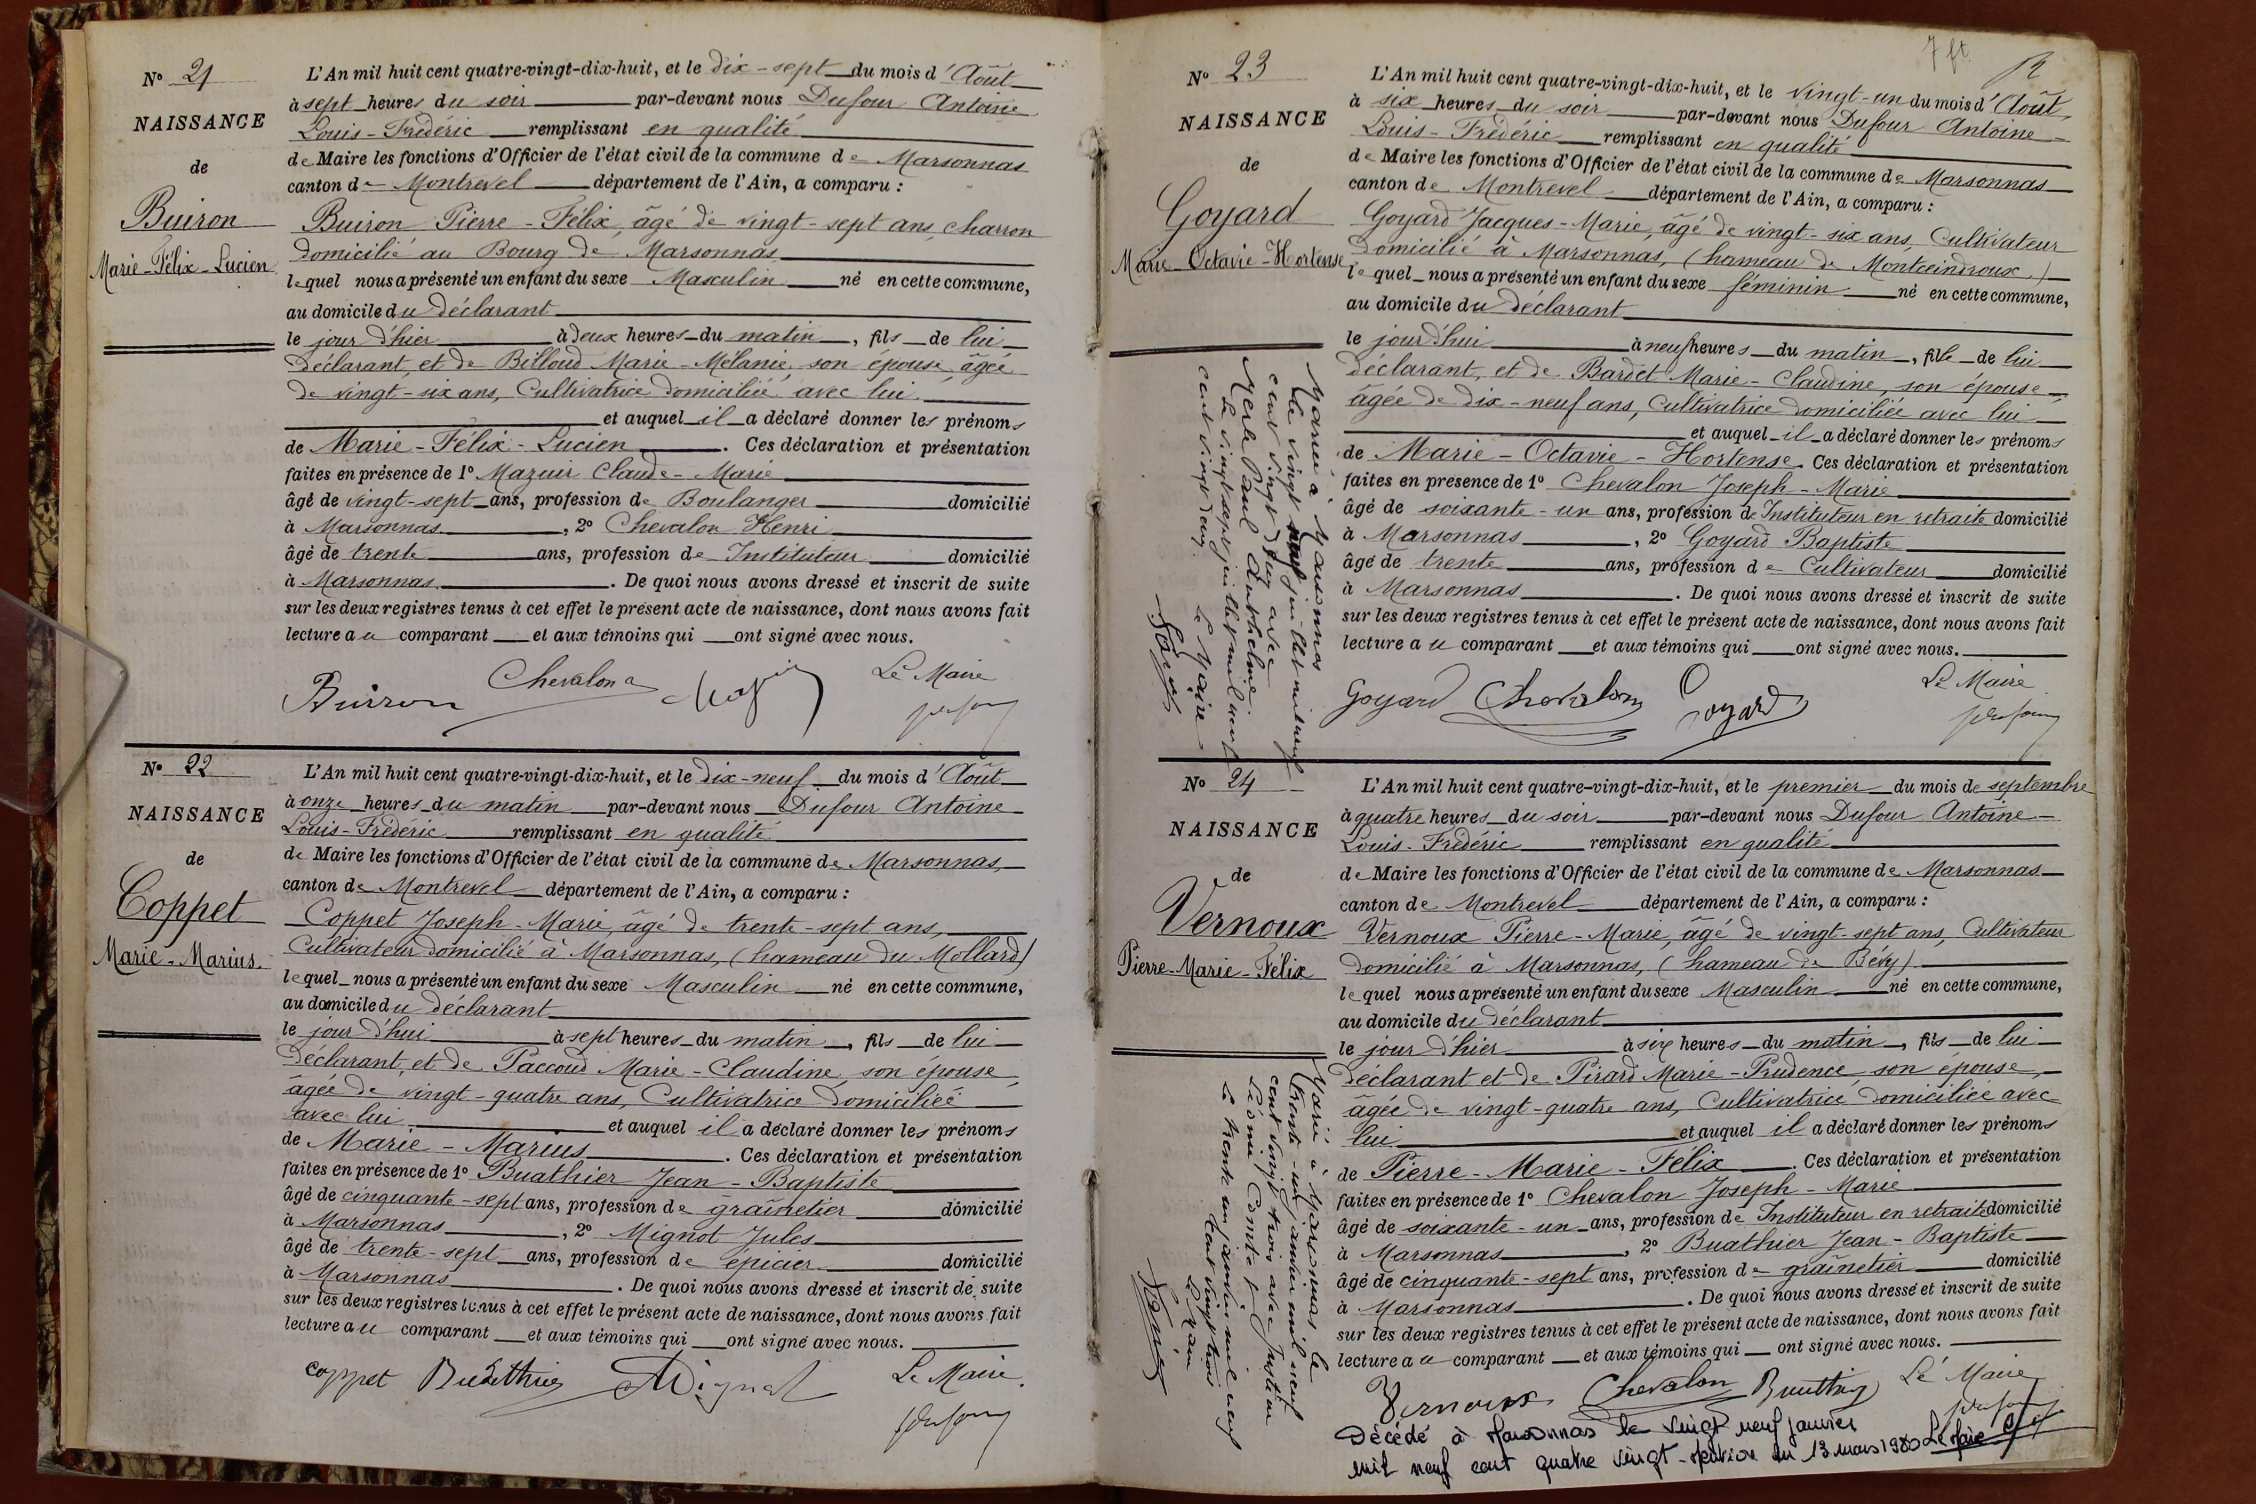 N° 21
NAISSANCE
de
Buiron
Marie-Félix-Lucien
L'An mil huit cent quatre-vingt-dix-huit, et le dix-sept du mois d'Août
à sept heures du soir par-devant nous Dufour Antoine
Louis-Frédéric remplissant en qualité
de Maire les fonctions d'Officier de l'état civil de la commune de Marsonnas
canton de Montrevel département de l'Ain, a comparu :
Buiron Pierre-Félix, âgé de vingt-sept ans, charron
domicilié au Bourg de Marsonnas
lequel nous a présenté un enfant du sexe Masculin né en cette commune,
au domicile du déclarant
le jour d'hier à deux heures du matin, fils de lui
déclarant, et de Billoud Marie-Mélanie, son épouse, âgée
de vingt-six ans, Cultivatrice domiciliée avec lui
et auquel il a déclaré donner les prénoms
de Marie-Félix-Lucien. Ces déclaration et présentation
faites en présence de 1° Mazuir Claude-Marie
âgé de vingt-sept ans, profession de Boulanger domicilié
à Marsonnas, 2° Chevalon Henri
âgé de trente ans, profession de Instituteur domicilié
à Marsonnas. De quoi nous avons dressé et inscrit de suite
sur les deux registres tenus à cet effet le présent acte de naissance, dont nous avons fait
lecture au comparant et aux témoins qui ont signé avec nous.
Buiron Chevalon Le Maire
Dufour
N° 22
NAISSANCE
de
Coppet
Marie-Marius.
L'An mil huit cent quatre-vingt-dix-huit, et le dix-neuf du mois d'Août
à onze heures du matin par-devant nous Dufour Antoine
Louis-Frédéric remplissant en qualité
de Maire les fonctions d'Officier de l'état civil de la commune de Marsonnas,
canton de Montrevel département de l'Ain, a comparu :
Coppet Joseph-Marie, âgé de trente-sept ans,
Cultivateur domicilié à Marsonnas, (hameau du Mollard)
lequel nous a présenté un enfant du sexe Masculin né en cette commune,
au domicile du déclarant
le jour d'hui à sept heures du matin, fils de lui
déclarant, et de Paccoud Marie-Claudine, son épouse,
âgée de vingt-quatre ans, Cultivatrice domiciliée
avec lui et auquel il a déclaré donner les prénoms
de Marie-Marius. Ces déclaration et présentation
faites en présence de 1° Buathier Jean-Baptiste
âgé de cinquante-sept ans, profession de grainetier domicilié
à Marsonnas, 2° Mignot Jules
âgé de trente-sept ans, profession de épicier domicilié
à Marsonnas. De quoi nous avons dressé et inscrit de suite
sur les deux registres tenus à cet effet le présent acte de naissance, dont nous avons fait
lecture au comparant et aux témoins qui ont signé avec nous.
coppet Buathier Mignot Le Maire.
Dufour
N° 23
NAISSANCE
de
Goyard
Marie-Octavie-Hortense
L'An mil huit cent quatre-vingt-dix-huit, et le vingt-un du mois d'Août,
à six heures du soir par-devant nous Dufour Antoine
Louis-Frédéric remplissant en qualité
de Maire les fonctions d'Officier de l'état civil de la commune de Marsonnas
canton de Montrevel département de l'Ain, a comparu :
Goyard Jacques-Marie, âgé de vingt-six ans, Cultivateur
domicilié à Marsonnas, (hameau de Montceindroux)
lequel nous a présenté un enfant du sexe féminin né en cette commune,
au domicile du déclarant
le jour d'hui à neuf heures du matin, fille de lui
déclarant, et de Bardet Marie-Claudine, son épouse
âgée de dix-neuf ans, Cultivatrice domiciliée avec lui
et auquel il a déclaré donner les prénoms
de Marie-Octavie-Hortense. Ces déclaration et présentation
faites en présence de 1° Chevalon Joseph-Marie
âgé de soixante-un ans, profession de Instituteur en retraite domicilié
à Marsonnas, 2° Goyard Baptiste
âgé de trente ans, profession de Cultivateur domicilié
à Marsonnas. De quoi nous avons dressé et inscrit de suite
sur les deux registres tenus à cet effet le présent acte de naissance, dont nous avons fait
lecture au comparant et aux témoins qui ont signé avec nous.
Goyard Chevalon Goyard Le Maire
Dufour
Mariée à Marsonnas
le vingt juillet mil neuf
cent vingt deux avec
Merle Paul Anthelme
Le vingt sept juillet mil neuf
cent vingt deux. Le Maire
N° 24
NAISSANCE
de
Vernoux
Pierre-Marie-Félix
L'An mil huit cent quatre-vingt-dix-huit, et le premier du mois de septembre
à quatre heures du soir par-devant nous Dufour Antoine
Louis-Frédéric remplissant en qualité
de Maire les fonctions d'Officier de l'état civil de la commune de Marsonnas
canton de Montrevel département de l'Ain, a comparu :
Vernoux Pierre-Marie, âgé de vingt-sept ans, Cultivateur
domicilié à Marsonnas, (hameau de Bévy)
lequel nous a présenté un enfant du sexe Masculin né en cette commune,
au domicile du déclarant
le jour d'hier à six heures du matin, fils de lui
déclarant et de Pirard Marie-Prudence, son épouse,
âgée de vingt-quatre ans, Cultivatrice domiciliée avec
lui et auquel il a déclaré donner les prénoms
de Pierre-Marie-Félix. Ces déclaration et présentation
faites en présence de 1° Chevalon Joseph-Marie
âgé de soixante-un ans, profession de Instituteur en retraite domicilié
à Marsonnas, 2° Buathier Jean-Baptiste
âgé de cinquante-sept ans, profession de grainetier domicilié
à Marsonnas. De quoi nous avons dressé et inscrit de suite
sur les deux registres tenus à cet effet le présent acte de naissance, dont nous avons fait
lecture au comparant et aux témoins qui ont signé avec nous.
Vernoux Chevalon Buathier Le Maire
Dufour
Décédé à Marsonnas le vingt neuf janvier
mil neuf cent quatre vingt. Mention du 13 mars 1980 Le Maire
Marié à Marsonnas le
trente-un janvier mil neuf
cent vingt trois avec
Le trente un janvier mil neuf
cent vingt trois
Le Maire